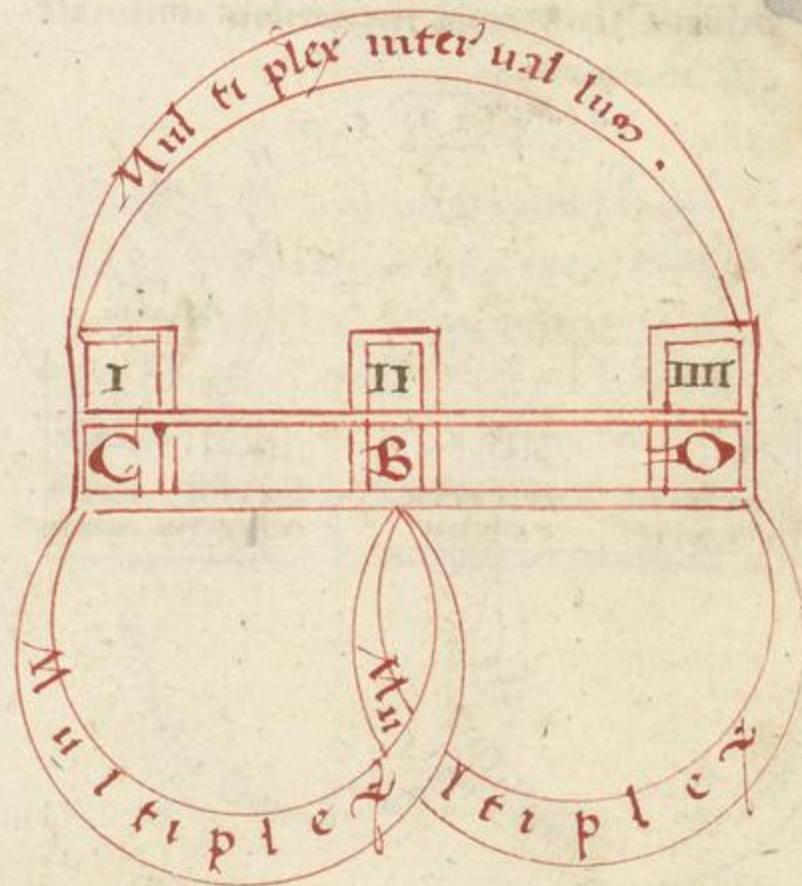 Mul ti plex inter ual lum.
I II IIII
C B D
Multiplex Multiplex